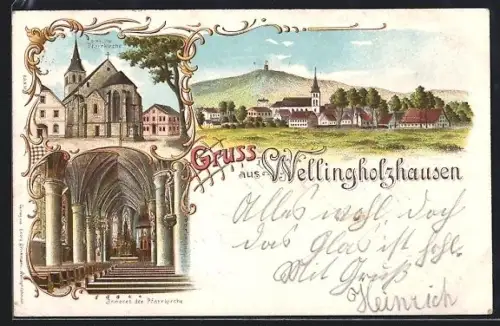 Pfarrkirche
Gruss
aus Wellingholzhausen
Alles wohl, doch
das Glas ist hohl.
Mit Gruß
Heinrich
Inneres der Pfarrkirche